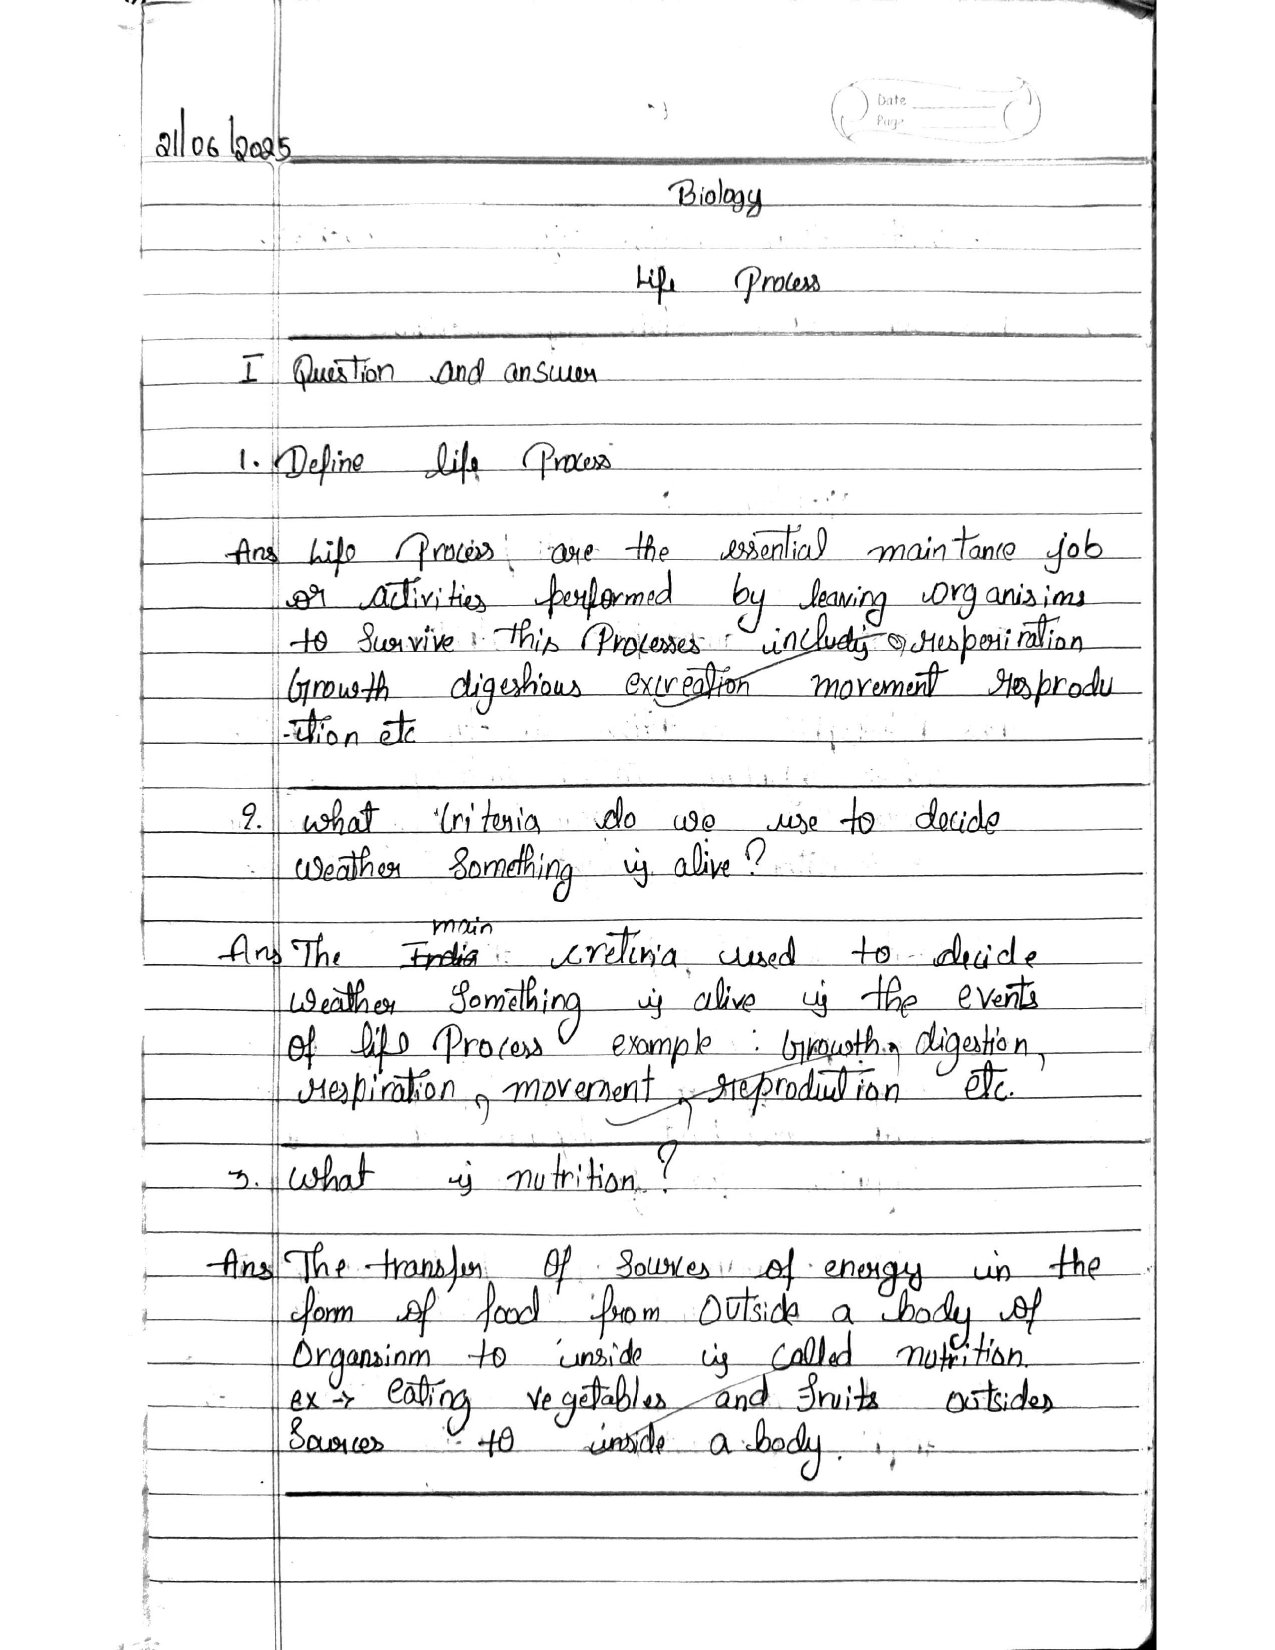 Date
Page
21/06/2025
Biology
Life Process
I Question and answer
1. Define life Process
Ans Life Process are the essential maintance job
or activities performed by leaving organisims
to Survive. this Processes includy respiriration
Growth digeshious excreation movement resprodu
-ction etc
2. what criteria do we use to decide
weather Something is alive?
main
Ans The India cretiria used to decide
weather Something is alive is the events
of life Process example : Growth, digestion,
respiration, movement, reproduction etc.
3. What is nutrition?
Ans The transfer of Sources of energy in the
form of food from Outside a body of
Organsinm to inside is called nutrition.
ex → eating vegetables and fruits outsides
Sources to inside a body.